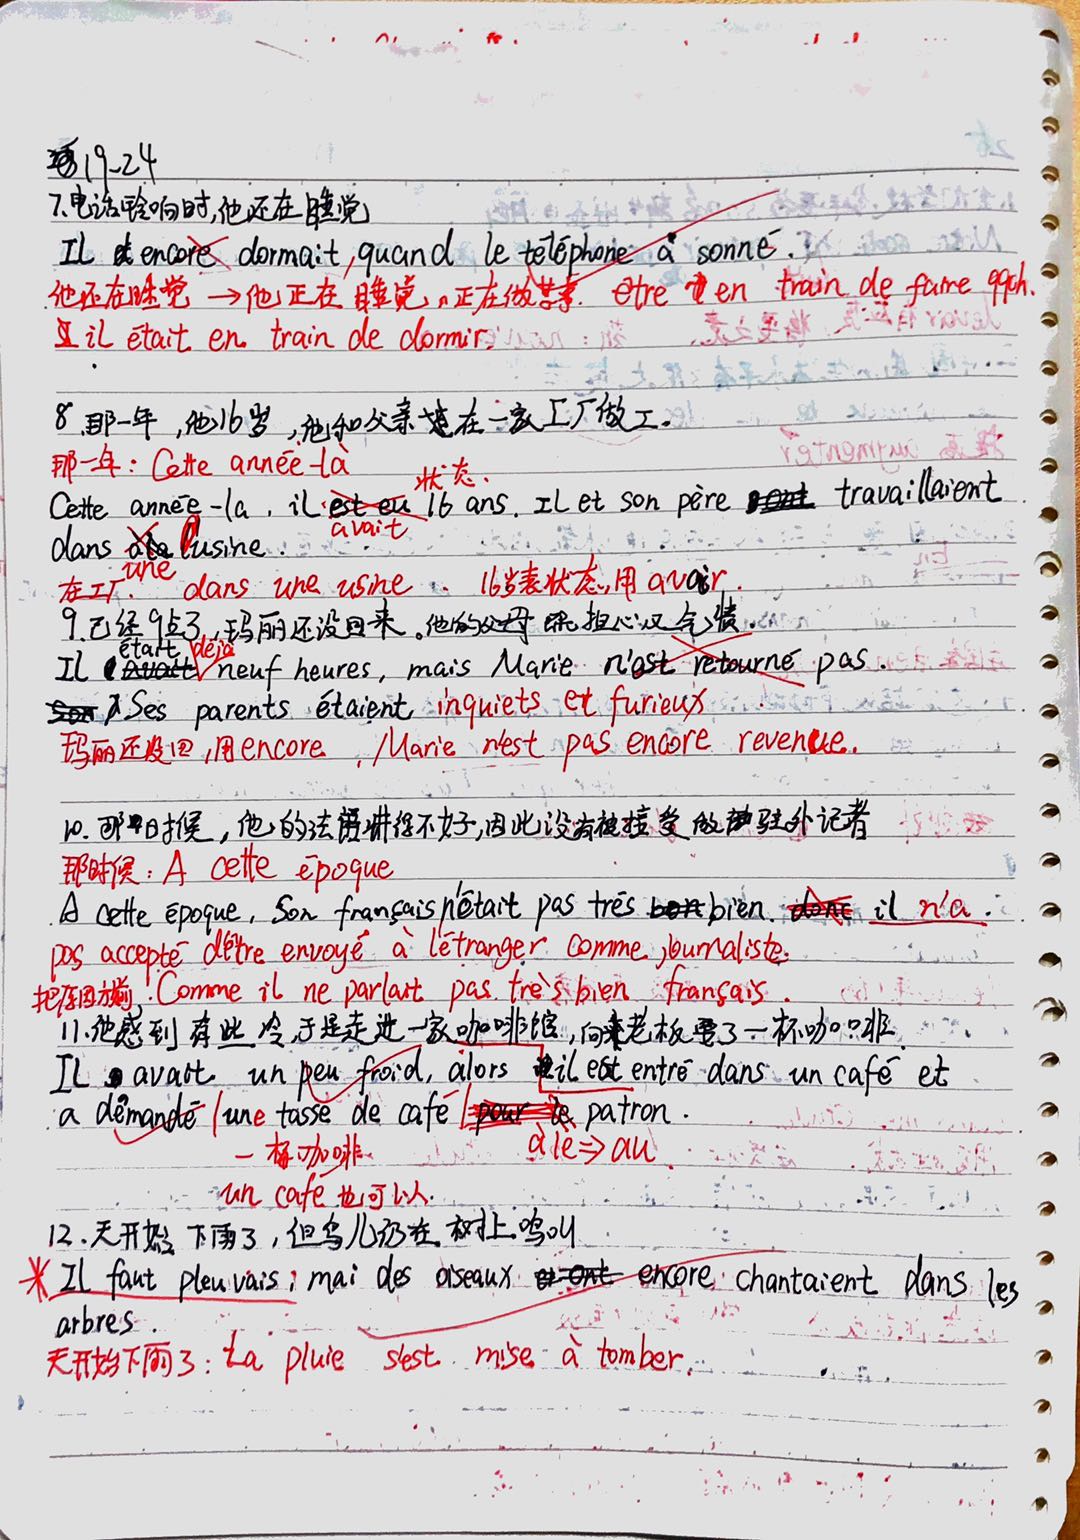 19-24
7.电话铃响时,他还在睡觉
Il encore dormait, quand le téléphone a sonné.
他还在睡觉 → 他正在睡觉。正在做某事. être en train de faire qqch.
il était en train de dormir.
8.那一年,他16岁,他和父亲在一家工厂做工.
那一年: Cette année-là
状态.
Cette année-la, il est eu 16 ans. Il et son père travaillaient
avait
dans à la l'usine.
une
在工厂. dans une usine. 16岁表状态,用avoir.
9.已经9点了,玛丽还没回来。他的父母既担心又气愤.
était déjà
Il avait neuf heures, mais Marie n'est retourné pas.
Son Ses parents étaient inquiets et furieux
玛丽还没回,用encore. Marie n'est pas encore revenue.
10.那时候,他的法语讲得不好,因此没有被接受做驻外记者
那时候: A cette époque
A cette époque, Son français n'était pas très bon bien. donc il n'a.
pas accepté d'être envoyé à l'étranger comme journaliste.
把原因方前! Comme il ne parlait pas très bien français.
11.他感到有些冷,于是走进一家咖啡馆,向老板要了一杯咖啡.
Il avait un peu froid, alors il est entré dans un café et
a démandé une tasse de café pour le patron.
一杯咖啡 à le ⇒ au
un café 也可以.
12.天开始下雨了,但鸟儿仍在树上鸣叫
Il faut pleuvais, mai des oiseaux ont encore chantaient dans les
arbres.
天开始下雨了: La pluie s'est mise à tomber.